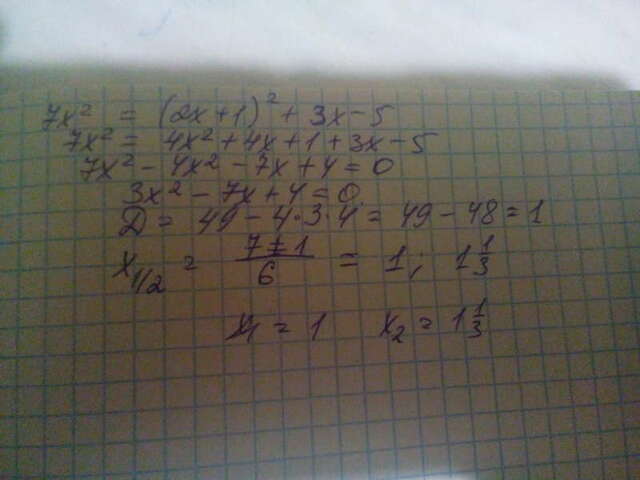 7x² = (2x+1)² + 3x - 5
7x² = 4x² + 4x + 1 + 3x - 5
7x² - 4x² - 7x + 4 = 0
3x² - 7x + 4 = 0
D = 49 - 4·3·4 = 49 - 48 = 1
x₁/₂ = (7±1)/6 = 1; 1 1/3
x₁ = 1 x₂ = 1 1/3